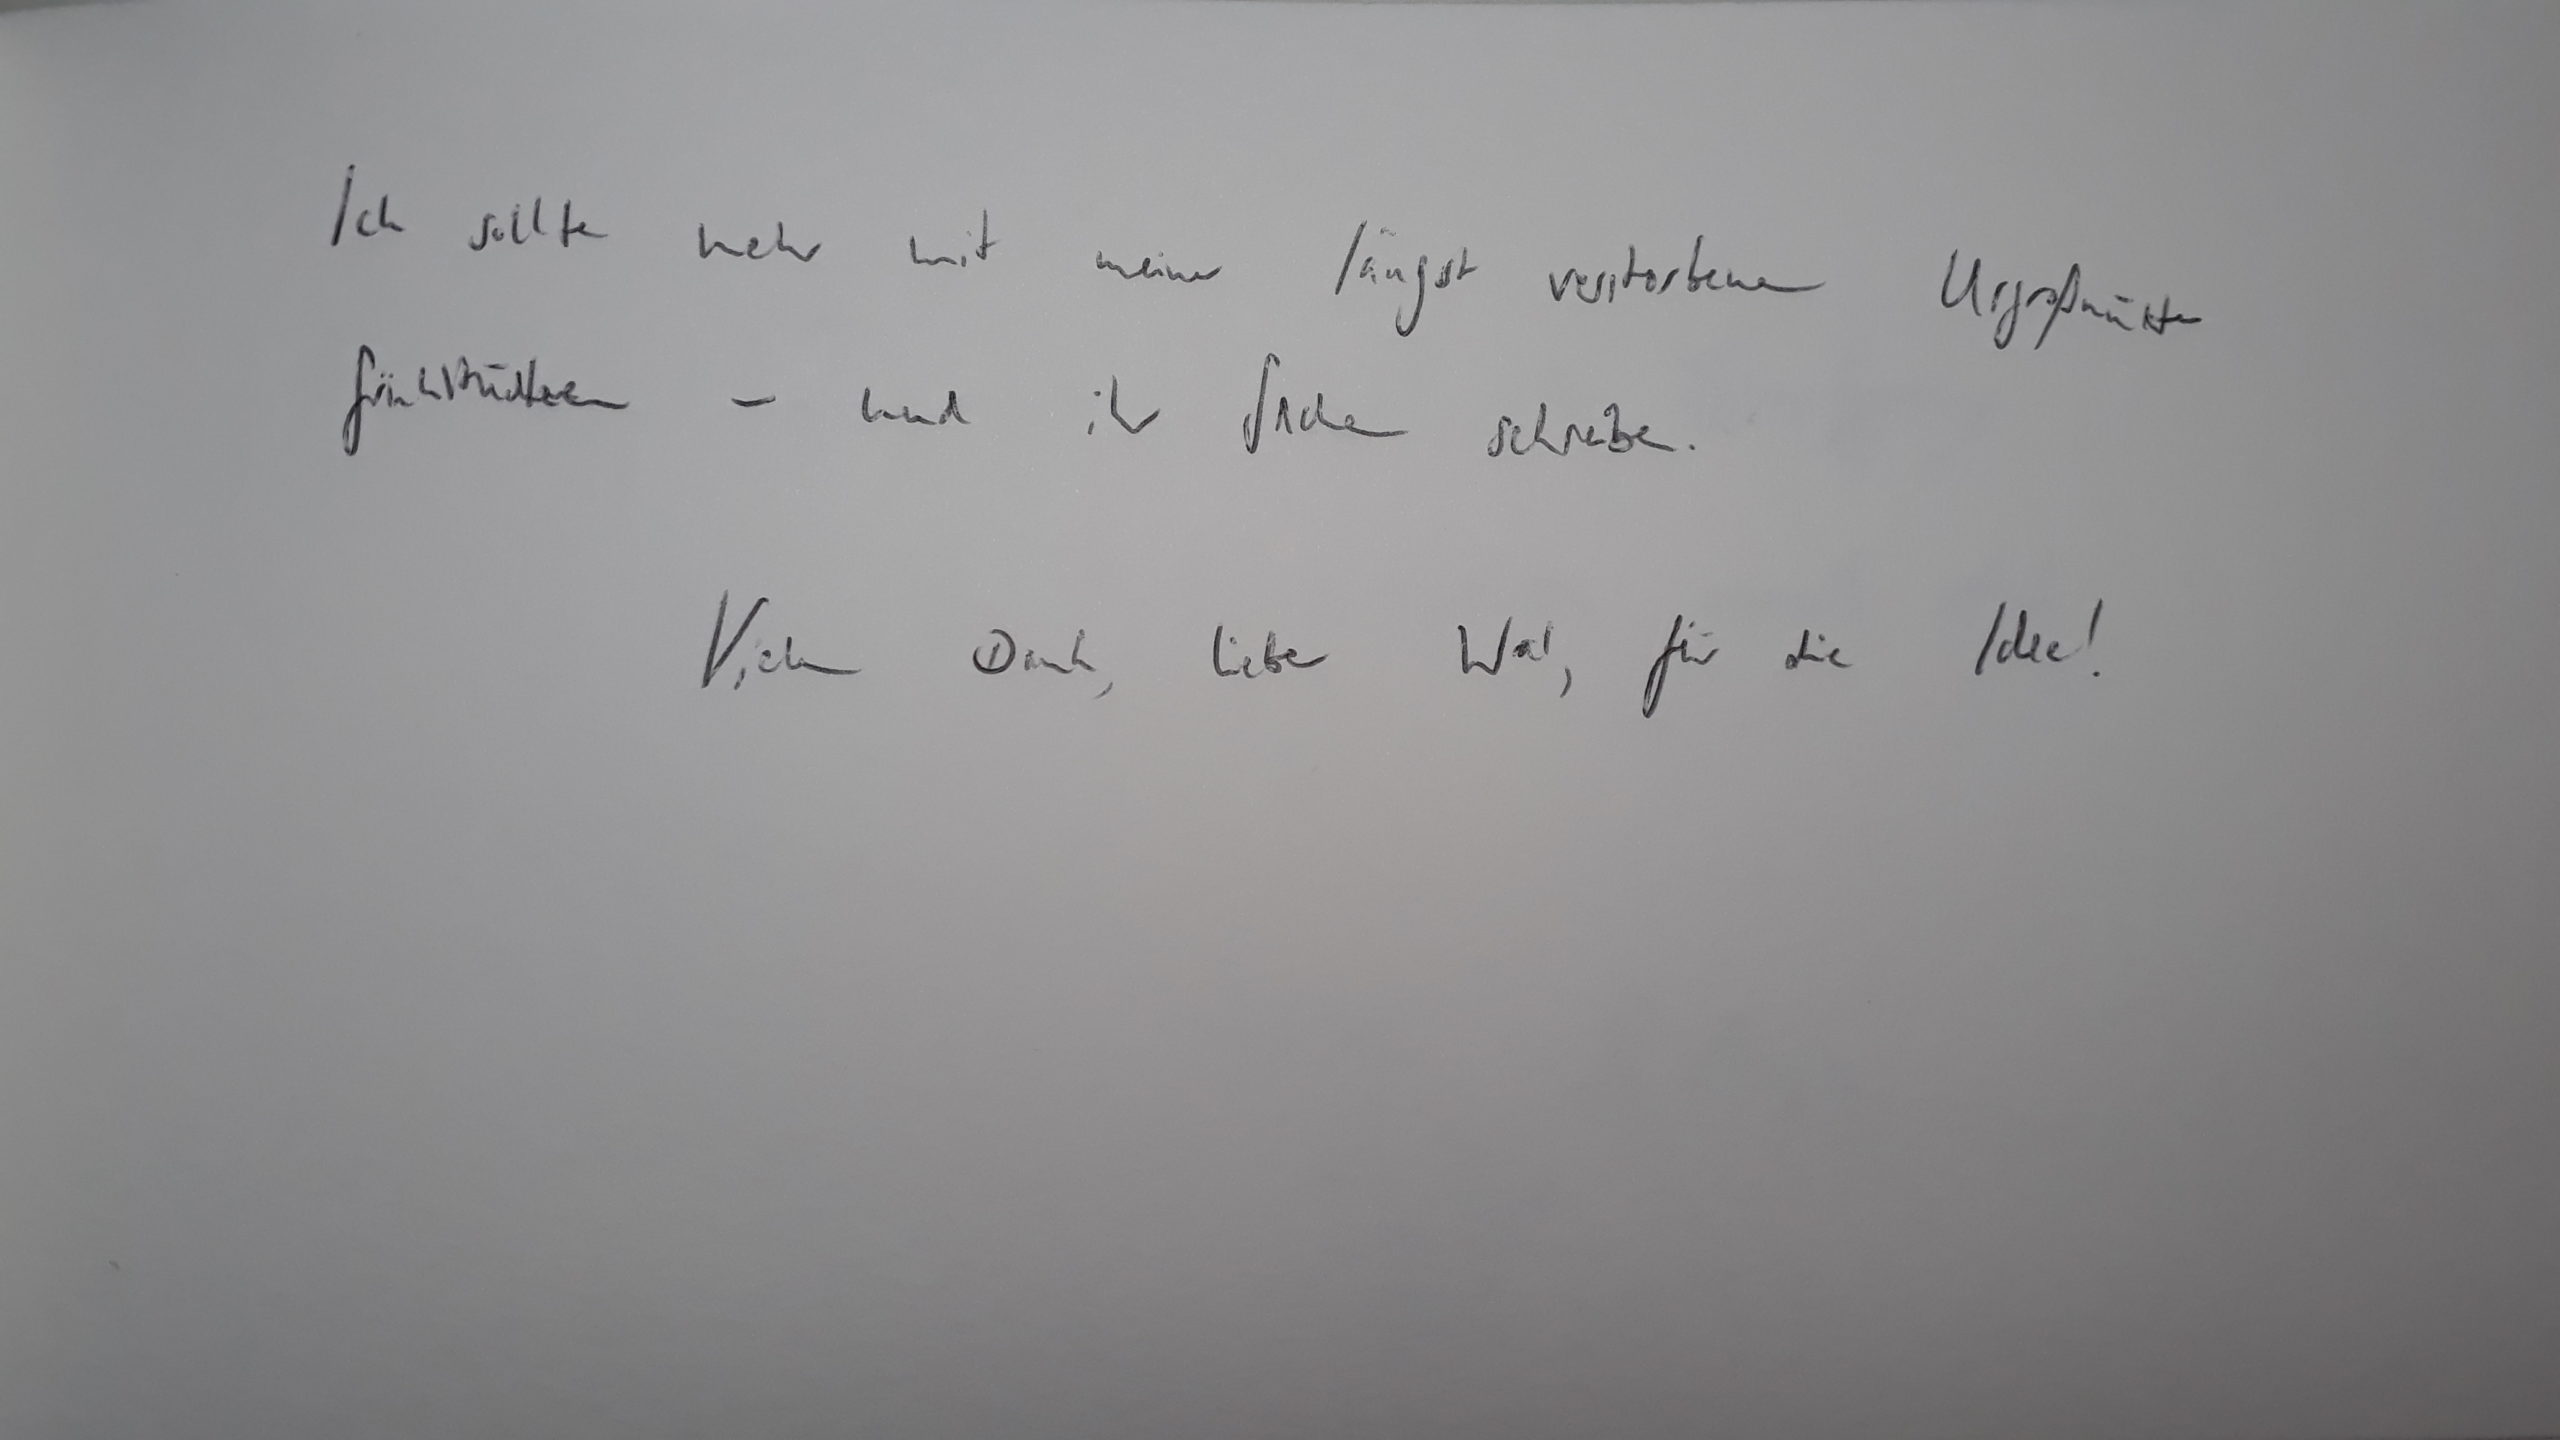 Ich sollte mehr mit meiner längst verstorbenen Urgroßmutter
frühstücken - und ihr schreiben.
Vielen Dank, lieber Wal, für die Idee!